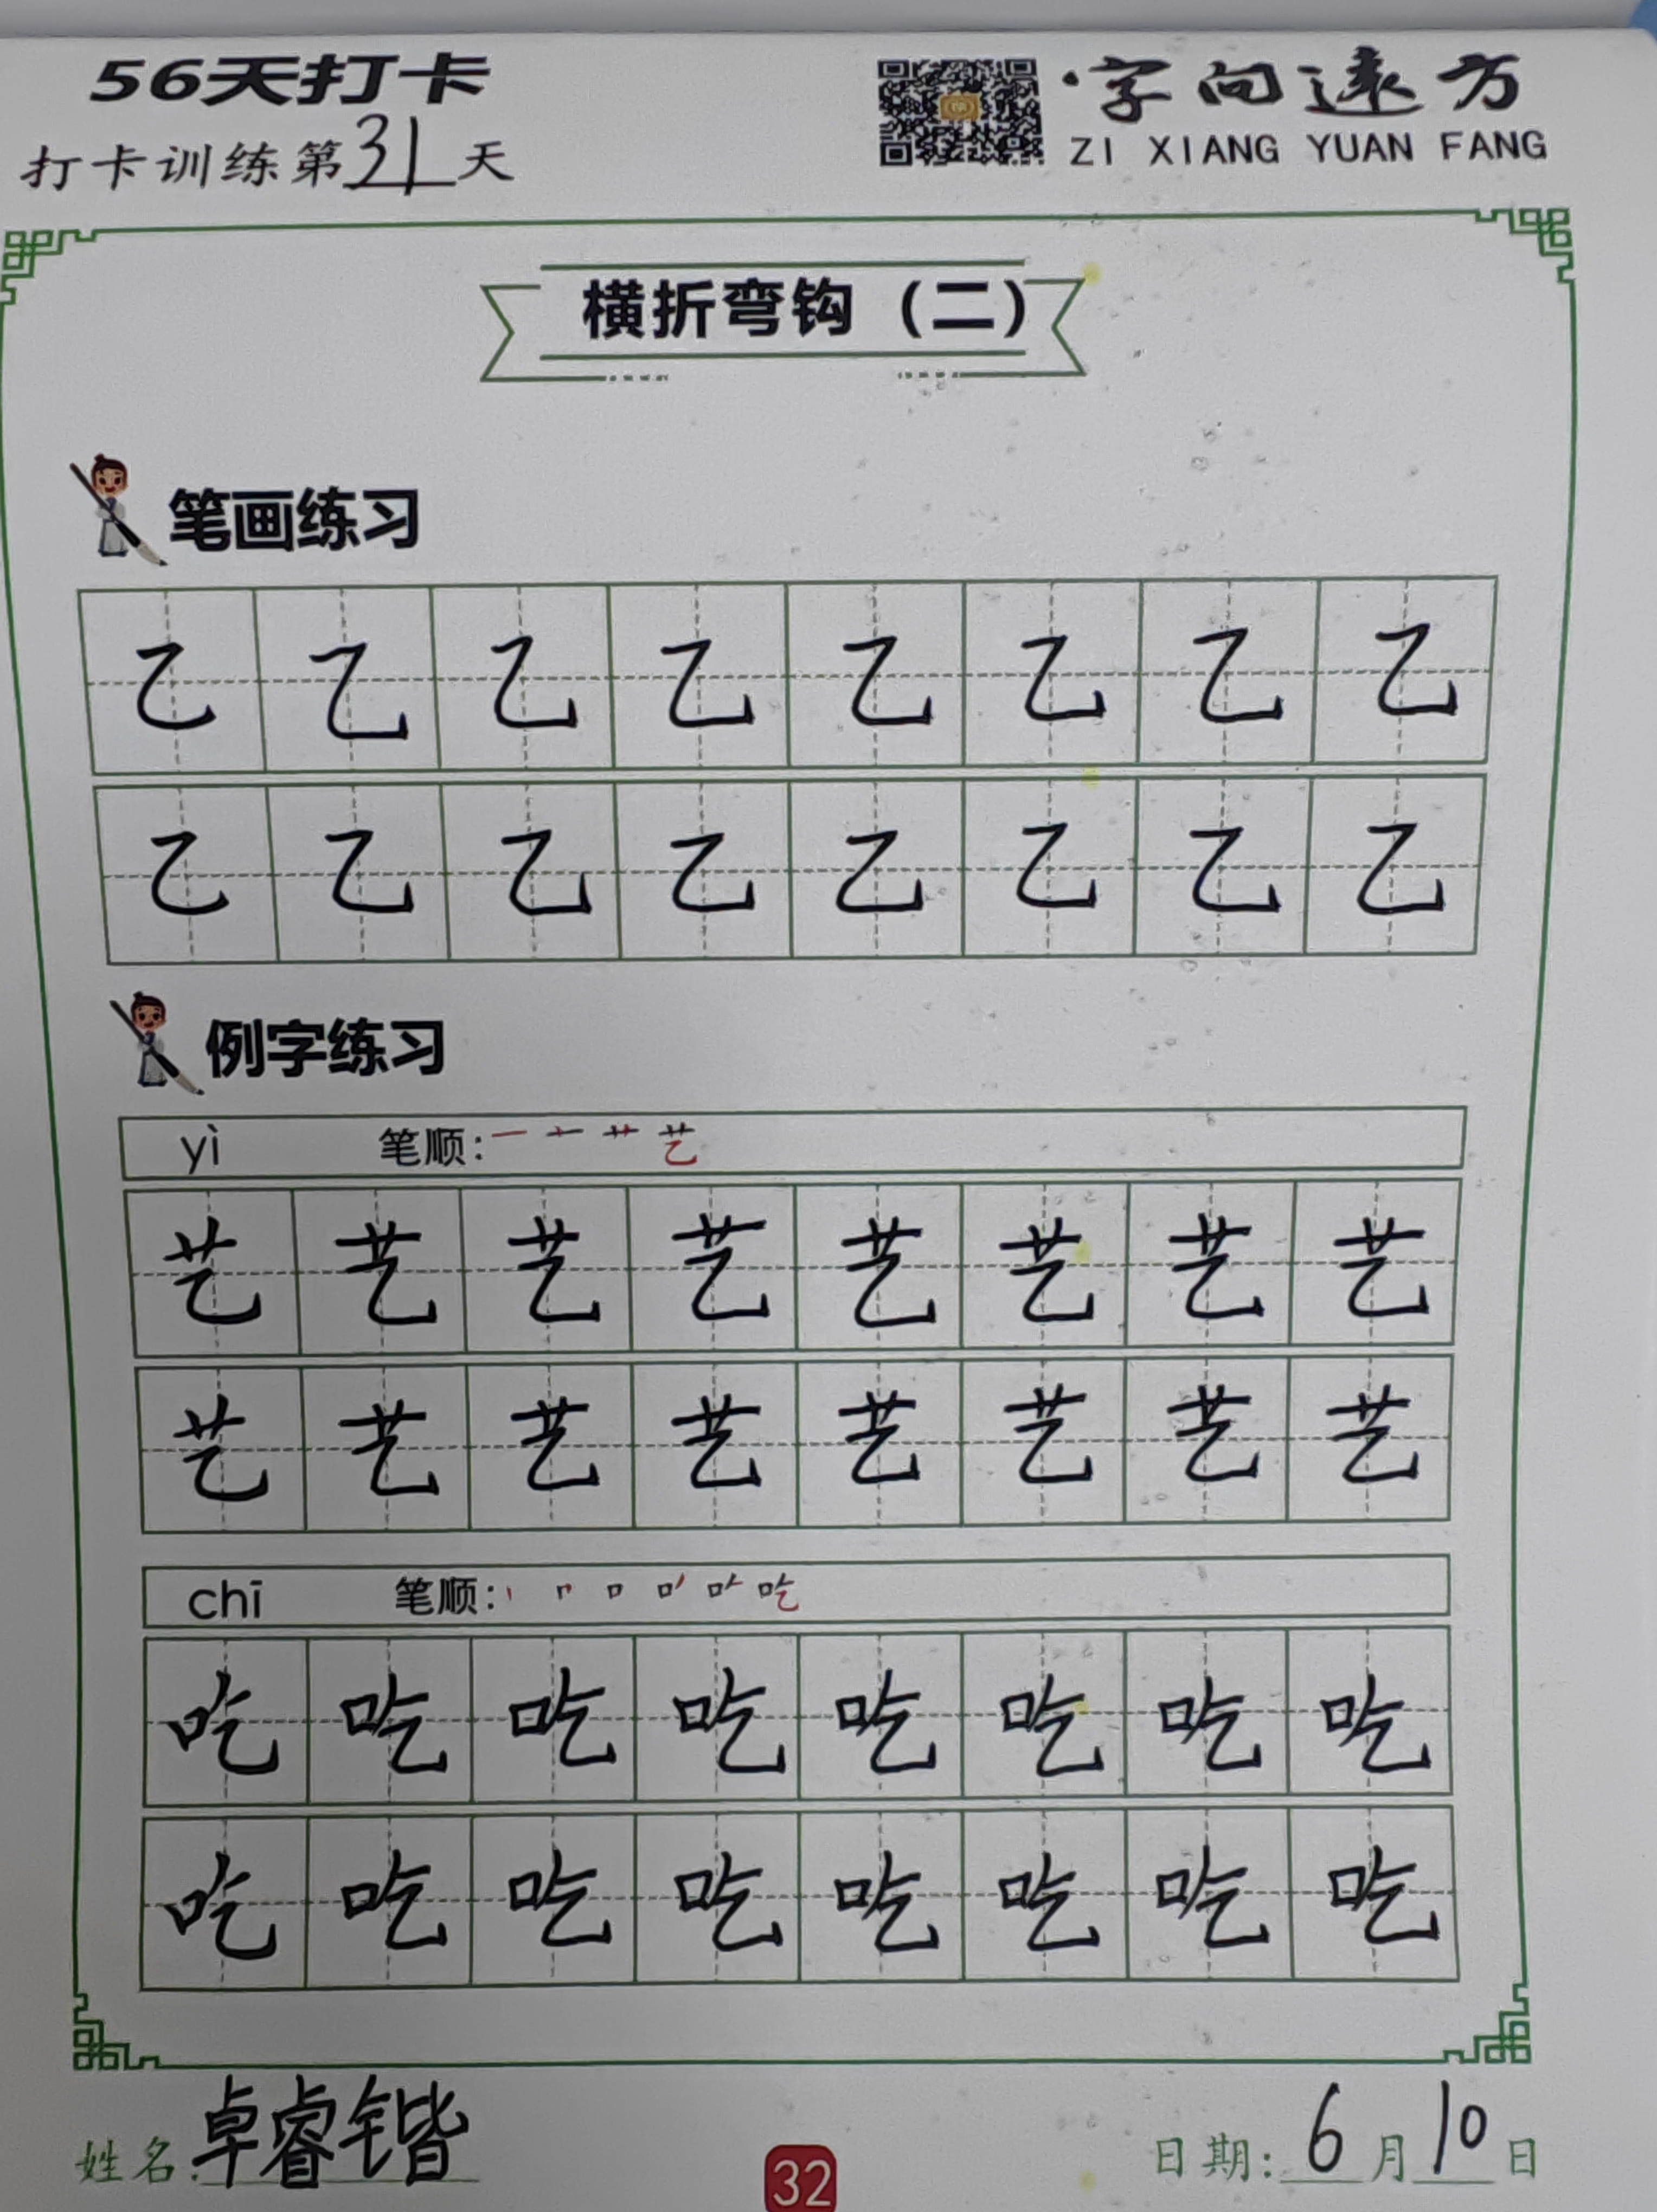 56天打卡
·字向远方
打卡训练第31天
ZI XIANG YUAN FANG
横折弯钩（二）
笔画练习
乙 乙 乙 乙 乙 乙 乙 乙
乙 乙 乙 乙 乙 乙 乙 乙
例字练习
yì 笔顺: 一 十 艹 艺
艺 艺 艺 艺 艺 艺 艺 艺
艺 艺 艺 艺 艺 艺 艺 艺
chī 笔顺: 丨 𠃍 口 吃
吃 吃 吃 吃 吃 吃 吃 吃
吃 吃 吃 吃 吃 吃 吃 吃
姓名:卓睿锴
32
日期:6月10日